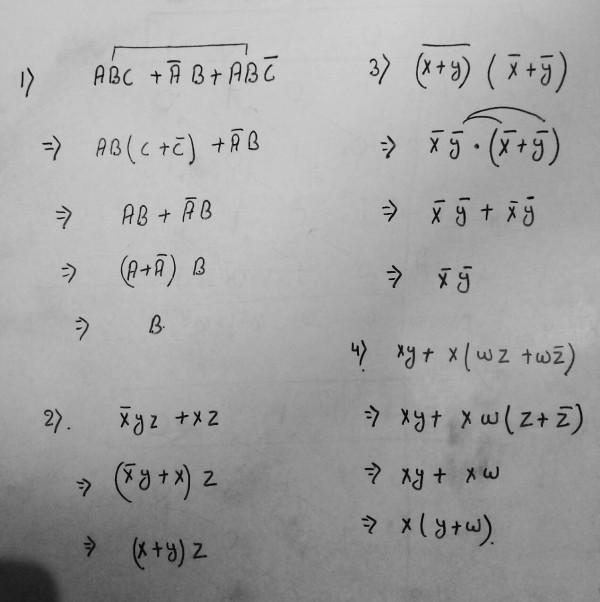 1) ABC + A̅ B + ABC̅
=> AB(C + C̅) + A̅B
=> AB + A̅B
=> (A+A̅) B
=> B.
2). x̅yz + xz
=> (x̅y + x) z
=> (x+y) z
3) (x+y)̅ (x̅ + y̅)
=> x̅ y̅ . (x̅ + y̅)
=> x̅ y̅ + x̅ y̅
=> x̅ y̅
4) xy + x(wz + wz̅)
=> xy + xw(z + z̅)
=> xy + xw
=> x(y+w).